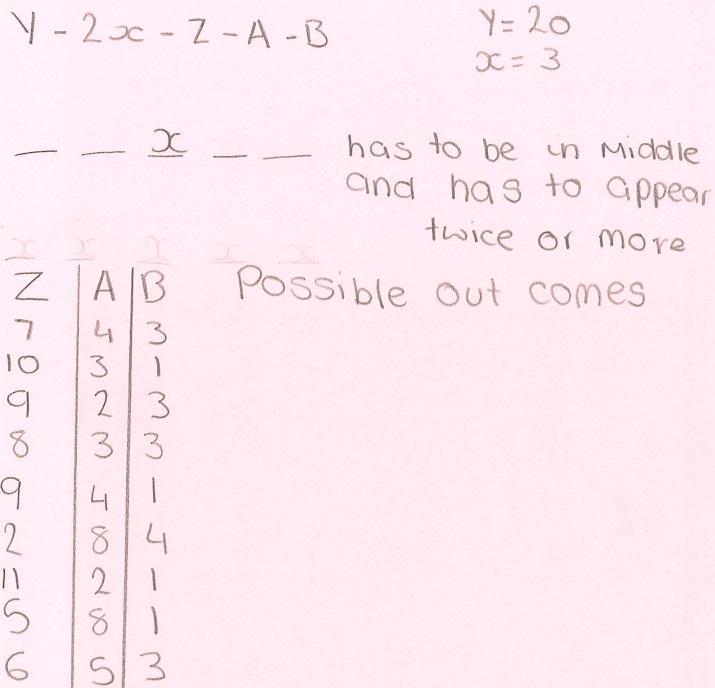 Y - 2x - Z - A - B
Y = 20
x = 3
_ _ x _ _ has to be in Middle
and has to appear
twice or more
x x x x x
Z A B Possible out comes
7 4 3
10 3 1
9 2 3
8 3 3
9 4 1
2 8 4
11 2 1
5 8 1
6 5 3